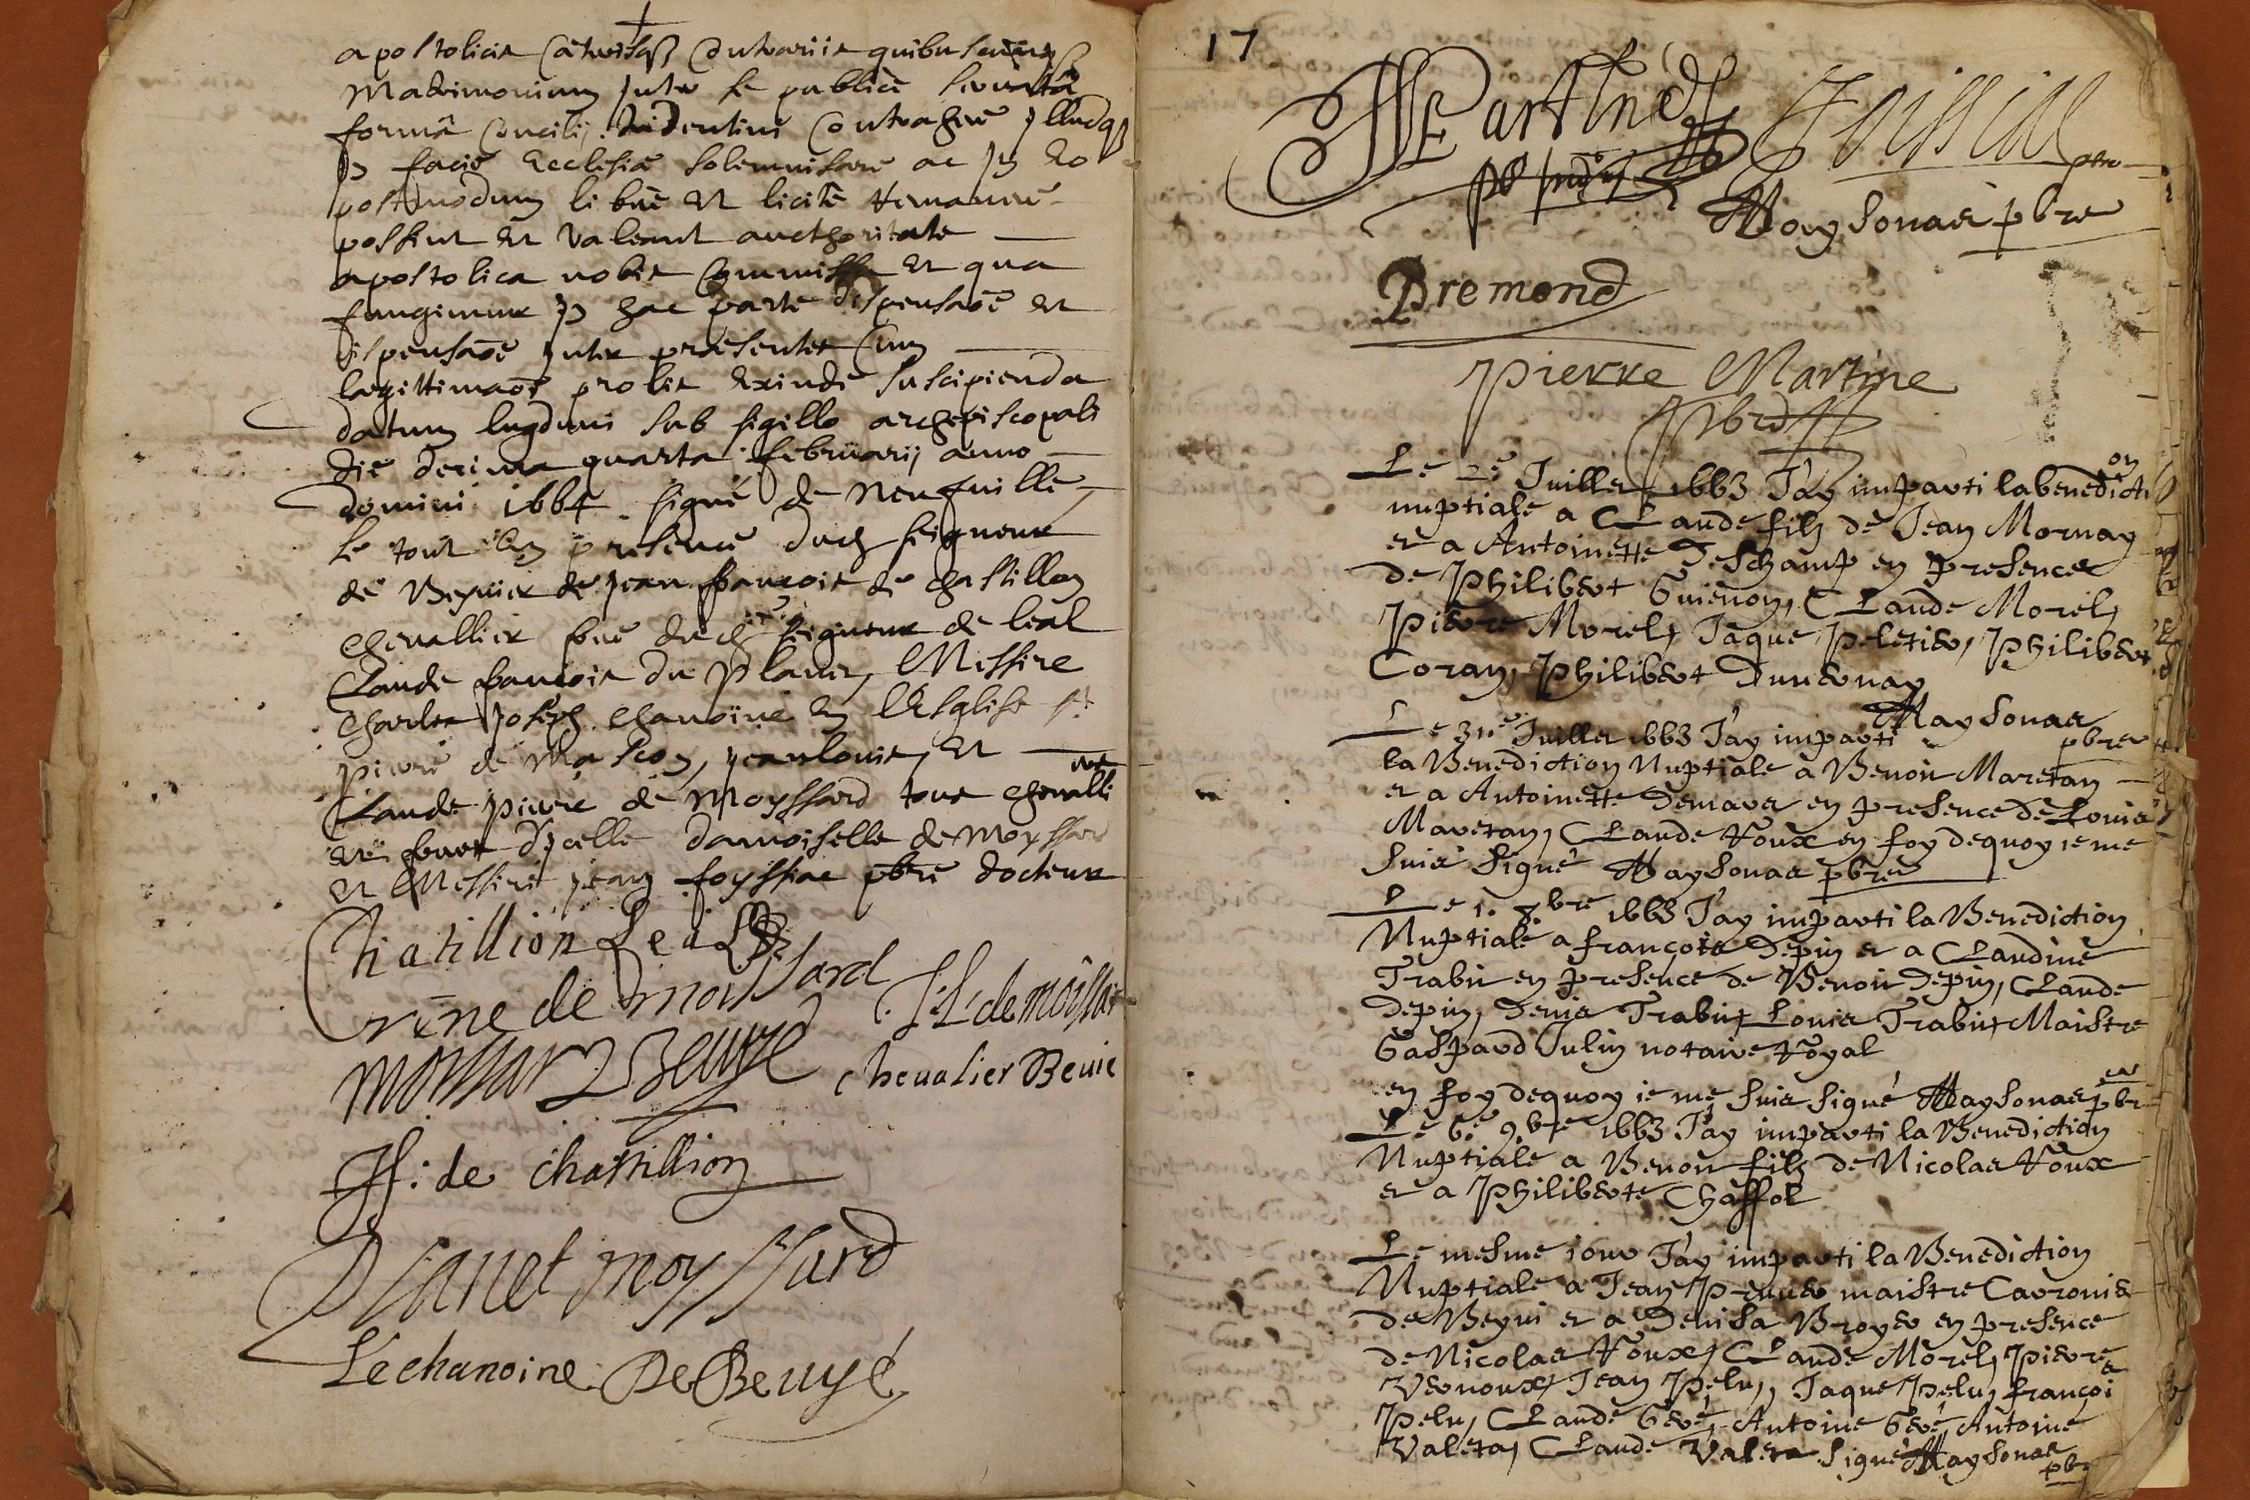 apostolicis contrariis quibuscumq
Matrimonium inter se publice servata
forma Concilii Tridentini Contrahere illudq
in facie Ecclesiæ solemnisare ac in eo
postmodum libere et licite remanere
possint et valeant aucthoritate
apostolica nobis Commissa et qua
fungimur in hac parte dispensaoe et
dispensaoe inter præsentes Cum
legittimaoe prolis exinde suscipienda
datum lugduni sub sigillo archiepiscopali
die decima quarta februarij anno
domini 1664 signé de Neufville
le tout en presence dud seigneur
de Beyvier de jean françois de chastillon
chevallier frere dud seigneur de leal
Claude françois du Planet, Messire
Charles Joseph chanoine en L'Esglise st
pierre de Mascon, jean louis, et
Claude pierre de Moyssard tous chevalliers
et freres d'ycelle damoiselle de Moyssard
et Messire jean foyssiac pbre docteur
Chatillion Leal
rene de moissard J: L: de moissar
moissar Beuye chevalier Beuie
F: de chastillion
Planet moyssard
Le chanoine De Beuyé
17
Martine Foissiac
pbre
Maysonas pbre
Bremond
Pierre Martine
pbre
Le 2e Juillet 1663 J'ay imparti la benediction
nuptiale a CLaude filz de Jean Mornay
et a Antoinette Deschamp en presences
de Philibert Guienon, CLaude Morel,
Pierre Morel, Jaque Peletier, Philibert
Coran, Philibert Duvernay
Maysonas
pbre
Le 31e Juillet 1663 J'ay imparti
la Benediction Nuptiale a Benoit Maretan
et a Antoinette Demares en presence de Louis
Maretan, CLaude Roux en foy dequoy ie me
suis signé Maysonas pbre
Le 1. 8.bre 1663 J'ay imparti la Benediction
Nuptiale a françois Depin et a CLaudine
Trabit en presence de Benoit Depin, CLaude
Depin, Denis Trabit Louis Trabit Maistre
Gaspard Julin notaire Royal
en foy dequoy ie me suis signé Maysonas pbre
Le 6.e 9.bre 1663 J'ay imparti la Benediction
Nuptiale a Benoit filz de Nicolas Roux
et a Philiberte Chaffol
Le mesme iour J'ay imparti la Benediction
Nuptiale a Jean Prunier maistre
de Beyvi et a Denisa Broyer en presence
de Nicolas Roux, CLaude Morel, Pierre
Vernoux, Jean Pelu, Jaque Pelu, françois
Pelu, CLaude Geré, Antoine Geré, Antoine
Valeta, CLaude Valeta signé Maysonas
pbr